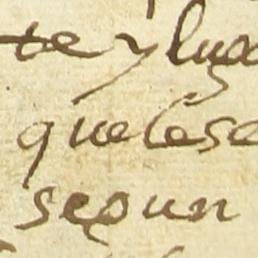 te y lug
que le se
segun